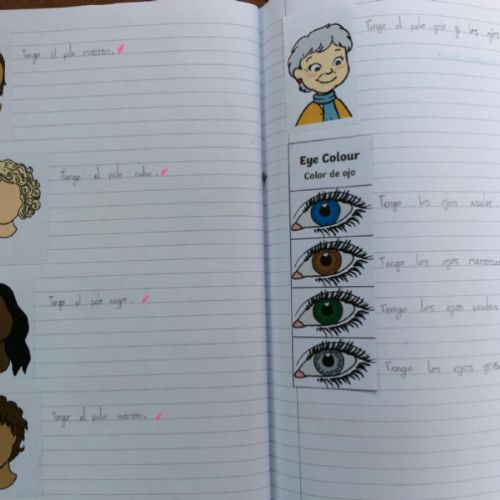 Tengo el pelo marron.
Tengo el pelo rubio.
Tengo el pelo negro.
Tengo el pelo marron.
Tengo el pelo gris y los ojos
Eye Colour
Color de ojo
Tengo los ojos azules.
Tengo los ojos marrones
Tengo los ojos verdes
Tengo los ojos grises